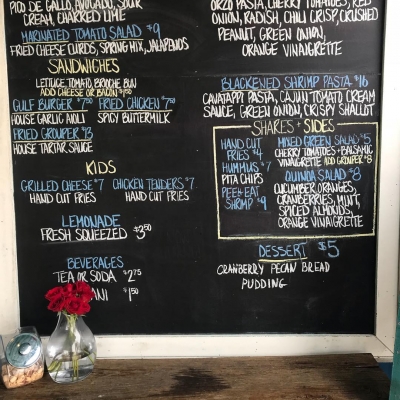 PICO DE GALLO, AVOCADO, SOUR
CREAM, CHARRED LIME
MARINATED TOMATO SALAD $9
FRIED CHEESE CURDS, SPRING MIX, JALAPENOS
SANDWICHES
LETTUCE, TOMATO, BRIOCHE BUN
ADD CHEESE OR BACON $1.50
GULF BURGER $7.50 FRIED CHICKEN $7.50
HOUSE GARLIC AIOLI SPICY BUTTERMILK
FRIED GROUPER $13
HOUSE TARTAR SAUCE
KIDS
GRILLED CHEESE $7 CHICKEN TENDERS $7
HAND CUT FRIES HAND CUT FRIES
LEMONADE
FRESH SQUEEZED $3.50
BEVERAGES
TEA OR SODA $2.75
$1.50
ORZO PASTA, CHERRY TOMATOES, RED
ONION, RADISH, CHILI CRISP, CRUSHED
PEANUT, GREEN ONION,
ORANGE VINAIGRETTE
BLACKENED SHRIMP PASTA $16
CAVATAPPI PASTA, CAJUN TOMATO CREAM
SAUCE, GREEN ONION, CRISPY SHALLOT
SHARES + SIDES
HAND CUT
FRIES $4
HUMMUS $7
PITA CHIPS
PEEL + EAT
SHRIMP $9
MIXED GREEN SALAD $5
CHERRY TOMATOES + BALSAMIC
VINAIGRETTE ADD GROUPER $8
QUINOA SALAD $8
CUCUMBER, ORANGES,
CRANBERRIES, MINT,
SPICED ALMONDS,
ORANGE VINAIGRETTE
DESSERT $5
CRANBERRY PECAN BREAD
PUDDING